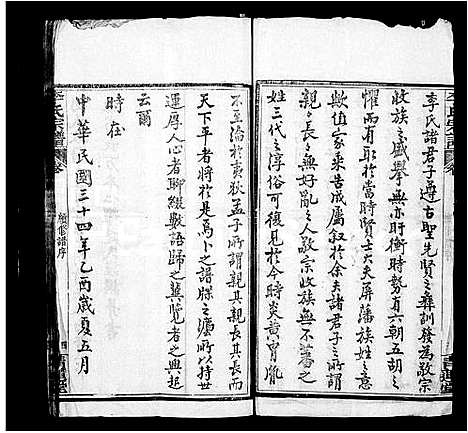 李氏諸君子遵古聖先賢之彝訓發爲敬宗
收族之盛舉無亦肝衡時勢有六朝五胡之
懼而有於當時賢士大夫屏藩族姓之意
歟值家乘告成屬叙於余夫諸君子之所謂
親之長之無好亂之人敬宗收族無不蕃之
姓三代之淳俗可復見於今時炎黃冑胤
不至淪於夷狄孟子所謂親其親長其長而
天下平者將於是爲卜之譜牒之濂所以持世
運厚人心者聊綴數語歸之冀覽者之興起
云爾
時在
中華民國三十四年乙酉歲夏五月
李氏宗譜 卷
續修譜序
四